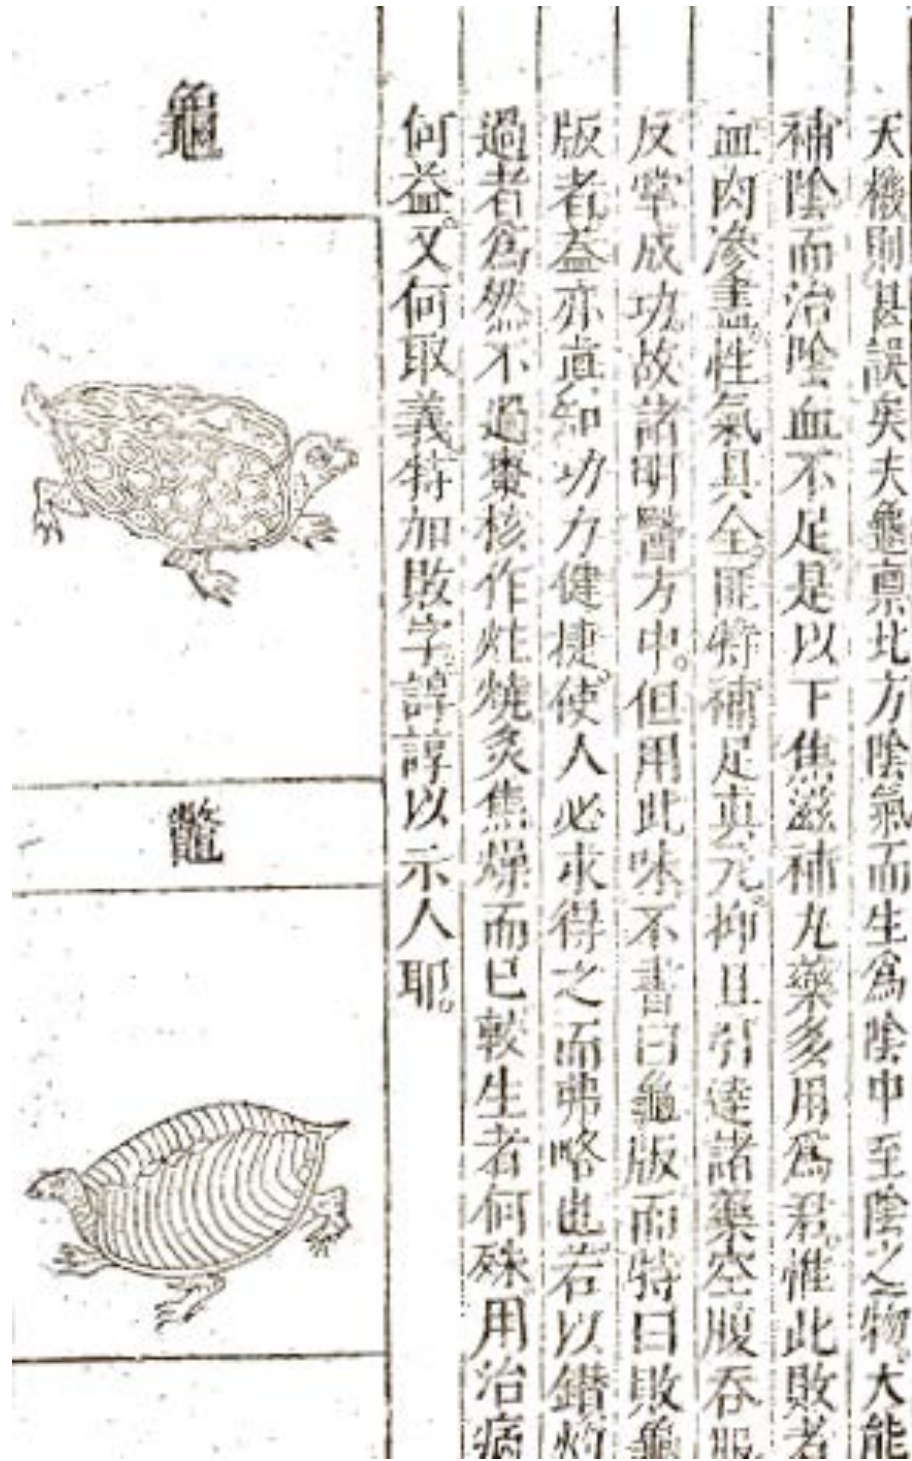 天機則甚誤矣夫龜稟北方陰氣而生為陰中至陰之物大能
補陰而治陰血不足是以下焦滋補丸藥多用為君惟此敗者
血肉滲盡性氣具全匪特補足真元抑且引達諸藥空腹吞服
反掌成功故諸明醫方中但用此味不書曰龜版而特曰敗龜
版者蓋亦真知功力健捷使人必求得之而弗略也若以鑽灼
過者為然不過棗核作炷燒炙焦燥而已較生者何殊用治病
何益又何取義特加敗字諄諄以示人耶
龜
鼈